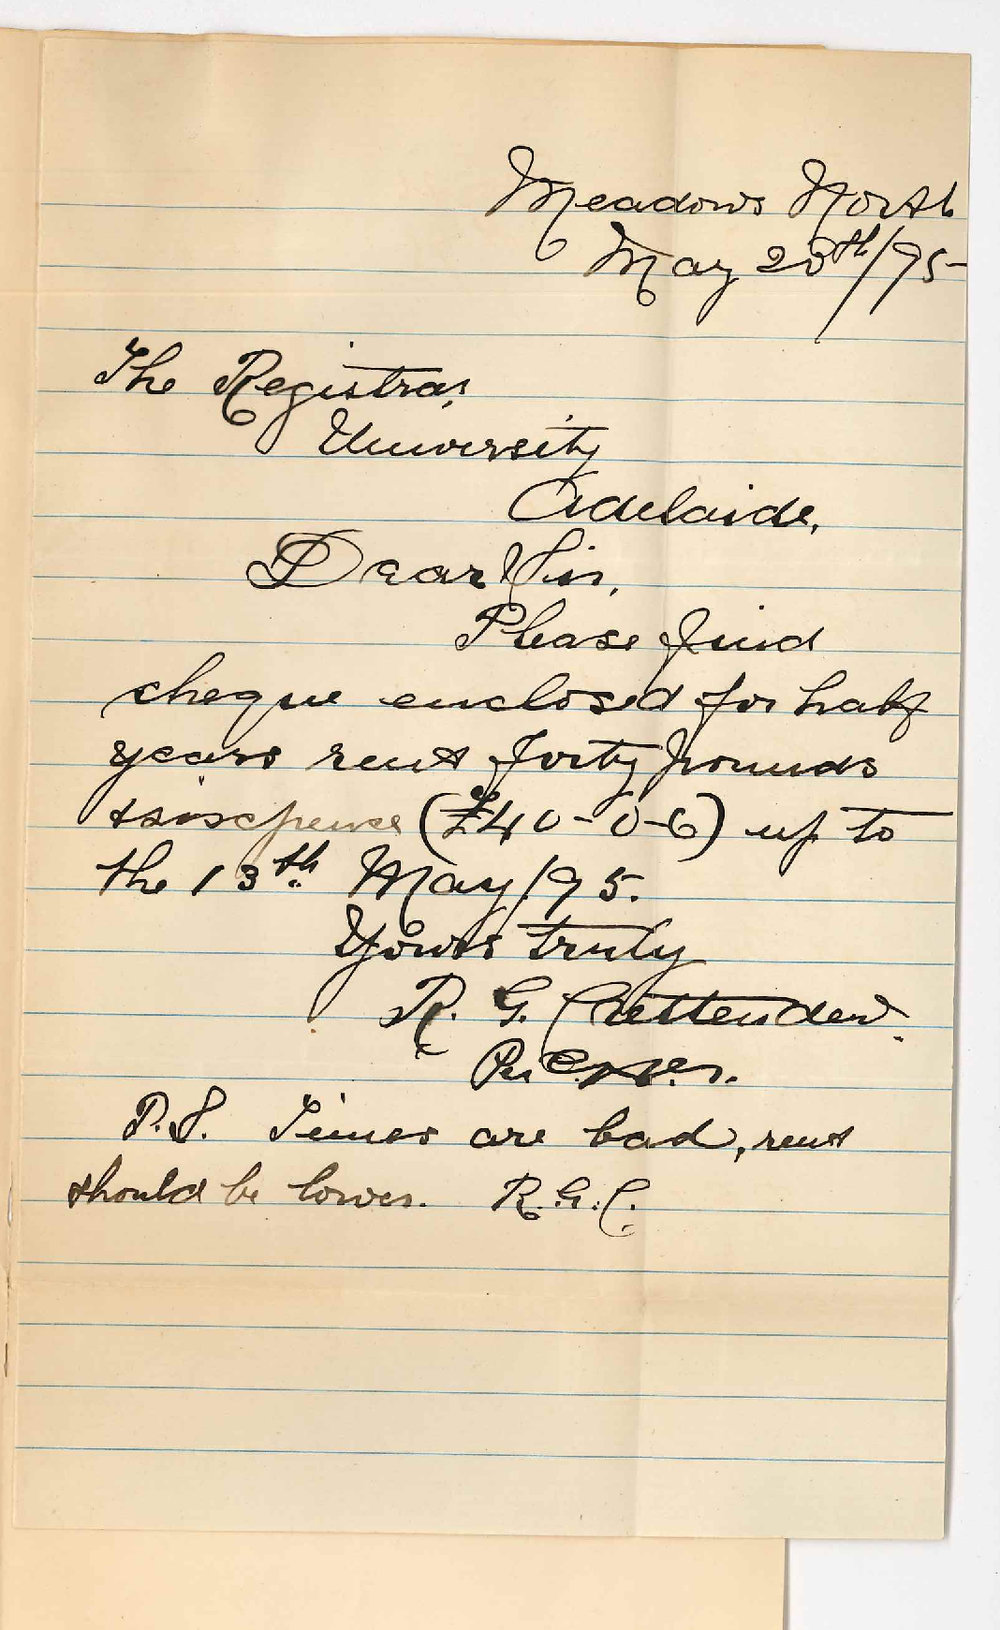 Meadows North
May 20th/95
The Registrar,
University
Adelaide,
Dear Sir,
Please find
cheque enclosed for half
years rent forty pounds
& sixpence (£40-0-6) up to
the 13th May/95.
Yours truly
R. G.
Per
P.S. Times are bad, rent
should be lower. R.G.C.